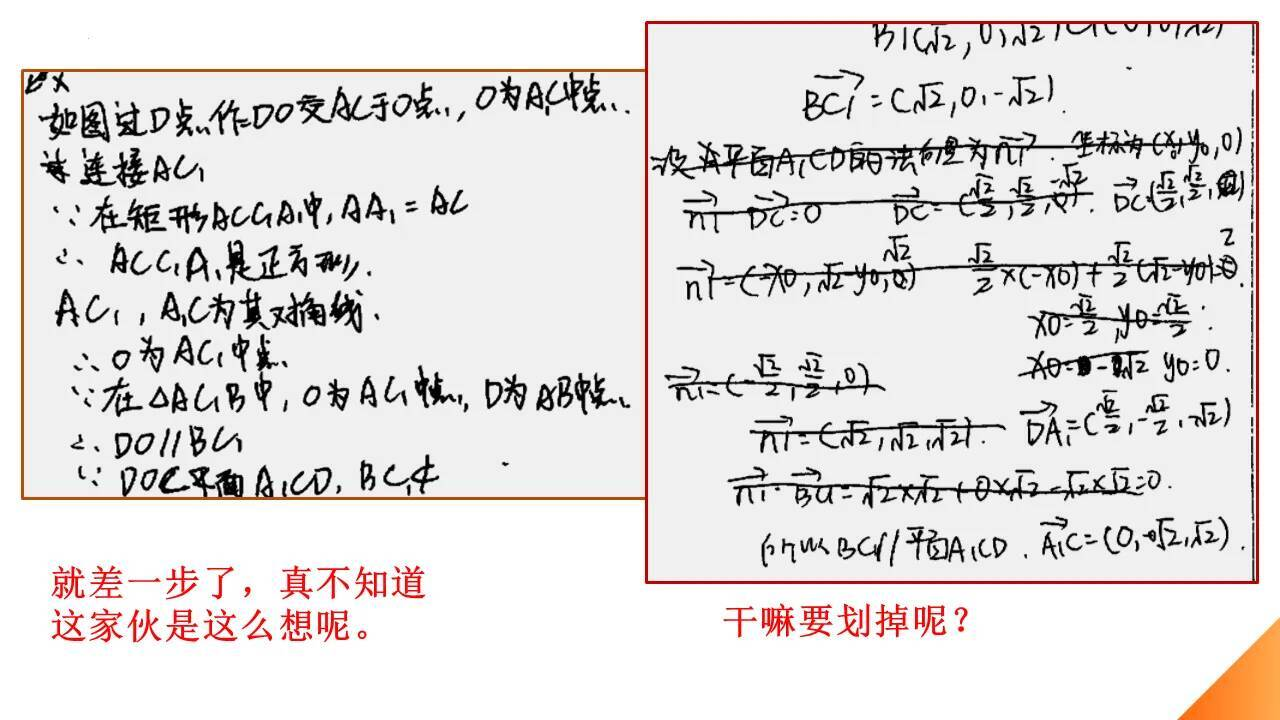 如图过D点作DO交AC于O点,O为A₁C中点.
连接AC₁
∵在矩形ACC₁A₁中,AA₁=AC
∴ ACC₁A₁是正方形.
AC₁,A₁C为其对角线.
∴O为AC₁中点.
∵在△AC₁B中,O为AC₁中点,D为AB中点.
∴DO//BC₁
∵DO⊂平面A₁CD,BC₁⊄
就差一步了,真不知道
这家伙是这么想呢。
B₁(√2,0,√2)
BC₁=(√2,0,-√2).
设平面A₁CD的法向量为n₁.坐标为(x₀,y₀,0)
n₁ DC=0 DC=(√2/2,√2/2, DC=(√2/2,√2/2,
n₁=(-x₀,√2-y₀, √2/2×(-x₀)+√2/2(√2-y₀)=
x₀=√2/2,y₀=√2/2.
x₀= √2 y₀=0.
n₁=(-√2/2,√2/2,0)
n₁=(√2,√2,√2). DA₁=(√2/2,-√2/2,√2)
n₁·BC₁=√2×√2+0×√2-√2×√2=0.
所以BC₁//平面A₁CD.A₁C=(0,-√2,√2).
干嘛要划掉呢?